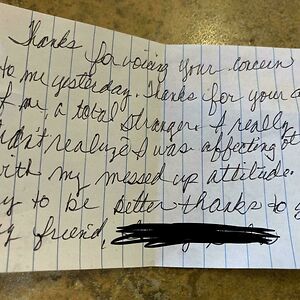 Thanks for voicing your concern
to me yesterday. Thanks for your
me, a total stranger. I really
realize I was affecting
with my messed up attitude.
to be better thanks to
friend,